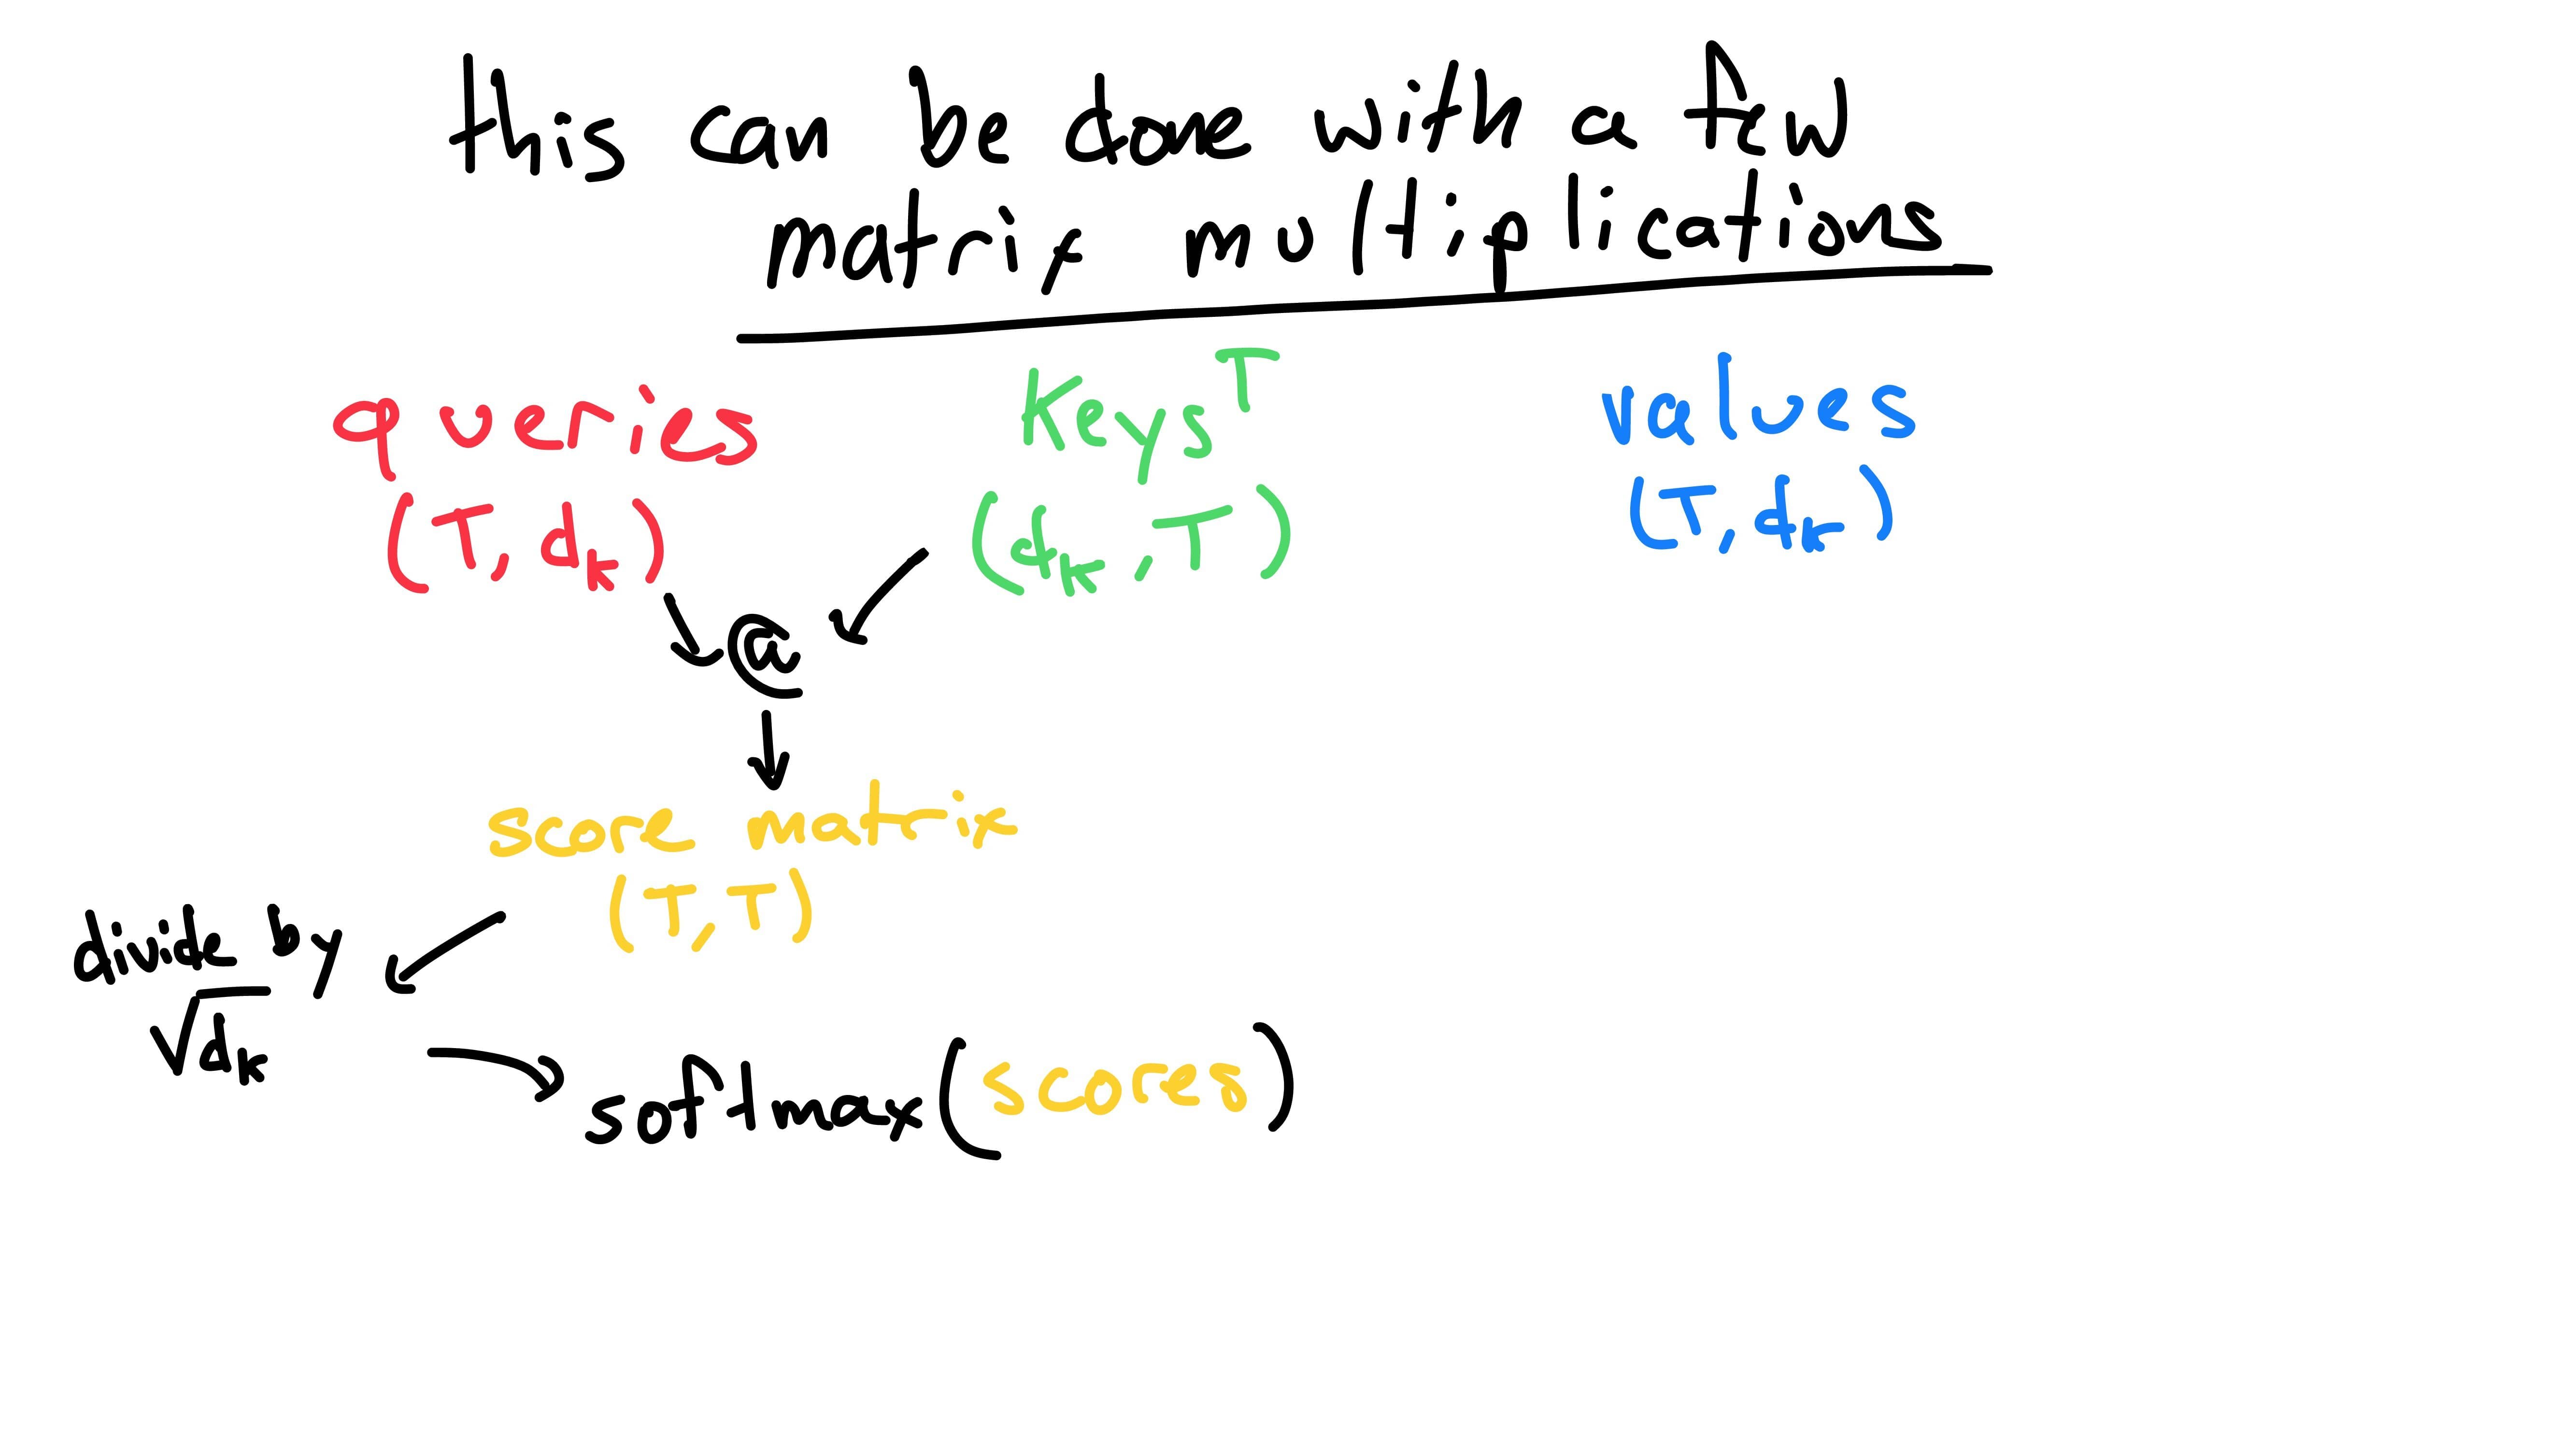 this can be done with a few
matrix multiplications
queries Keysᵀ values
(T, dₖ) (dₖ, T) (T, dₖ)
@
score matrix
(T, T)
divide by
√dₖ
softmax(scores)